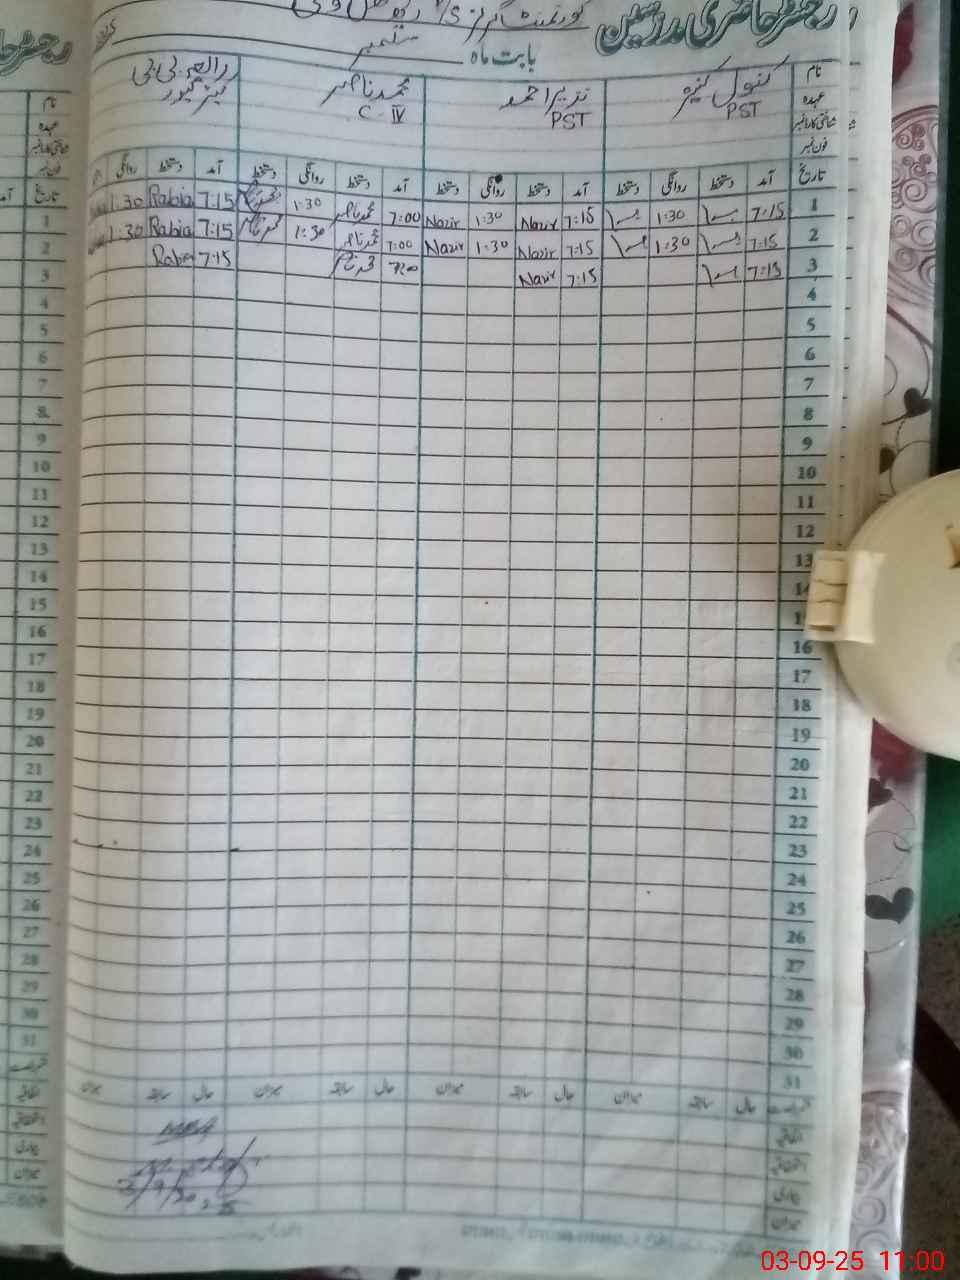 رجسٹر حاضری مدرسین گورنمنٹ گرلز
بابت ماہ ستمبر
نام کنول کنیز نذیر احمد محمد ناصر رابعہ بی بی
عہدہ PST PST C-IV کیئر گیور
شناختی کارڈ نمبر
فون نمبر
تاریخ آمد دستخط روانگی دستخط آمد دستخط روانگی دستخط آمد دستخط روانگی دستخط آمد دستخط روانگی
1 7:15 1:30 7:15 Nazir 1:30 Nazir 7:00 محمد ناصر 1:30 محمد ناصر 7:15 Rabia 1:30
2 7:15 1:30 7:15 Nazir 1:30 Nazir 7:00 محمد ناصر 1:30 محمد ناصر 7:15 Rabia 1:30
3 7:15 7:15 Nazir 7:00 محمد ناصر 7:15 Rabia
4
5
6
7
8
9
10
11
12
13
14
15
16
17
18
19
20
21
22
23
24
25
26
27
28
29
30
31
حال سابقہ میزان حال سابقہ میزان حال سابقہ میزان حال سابقہ میزان
اتفاقیہ
استحقاقیہ
بیماری
میزان
3/9/2025
03-09-25 11:00